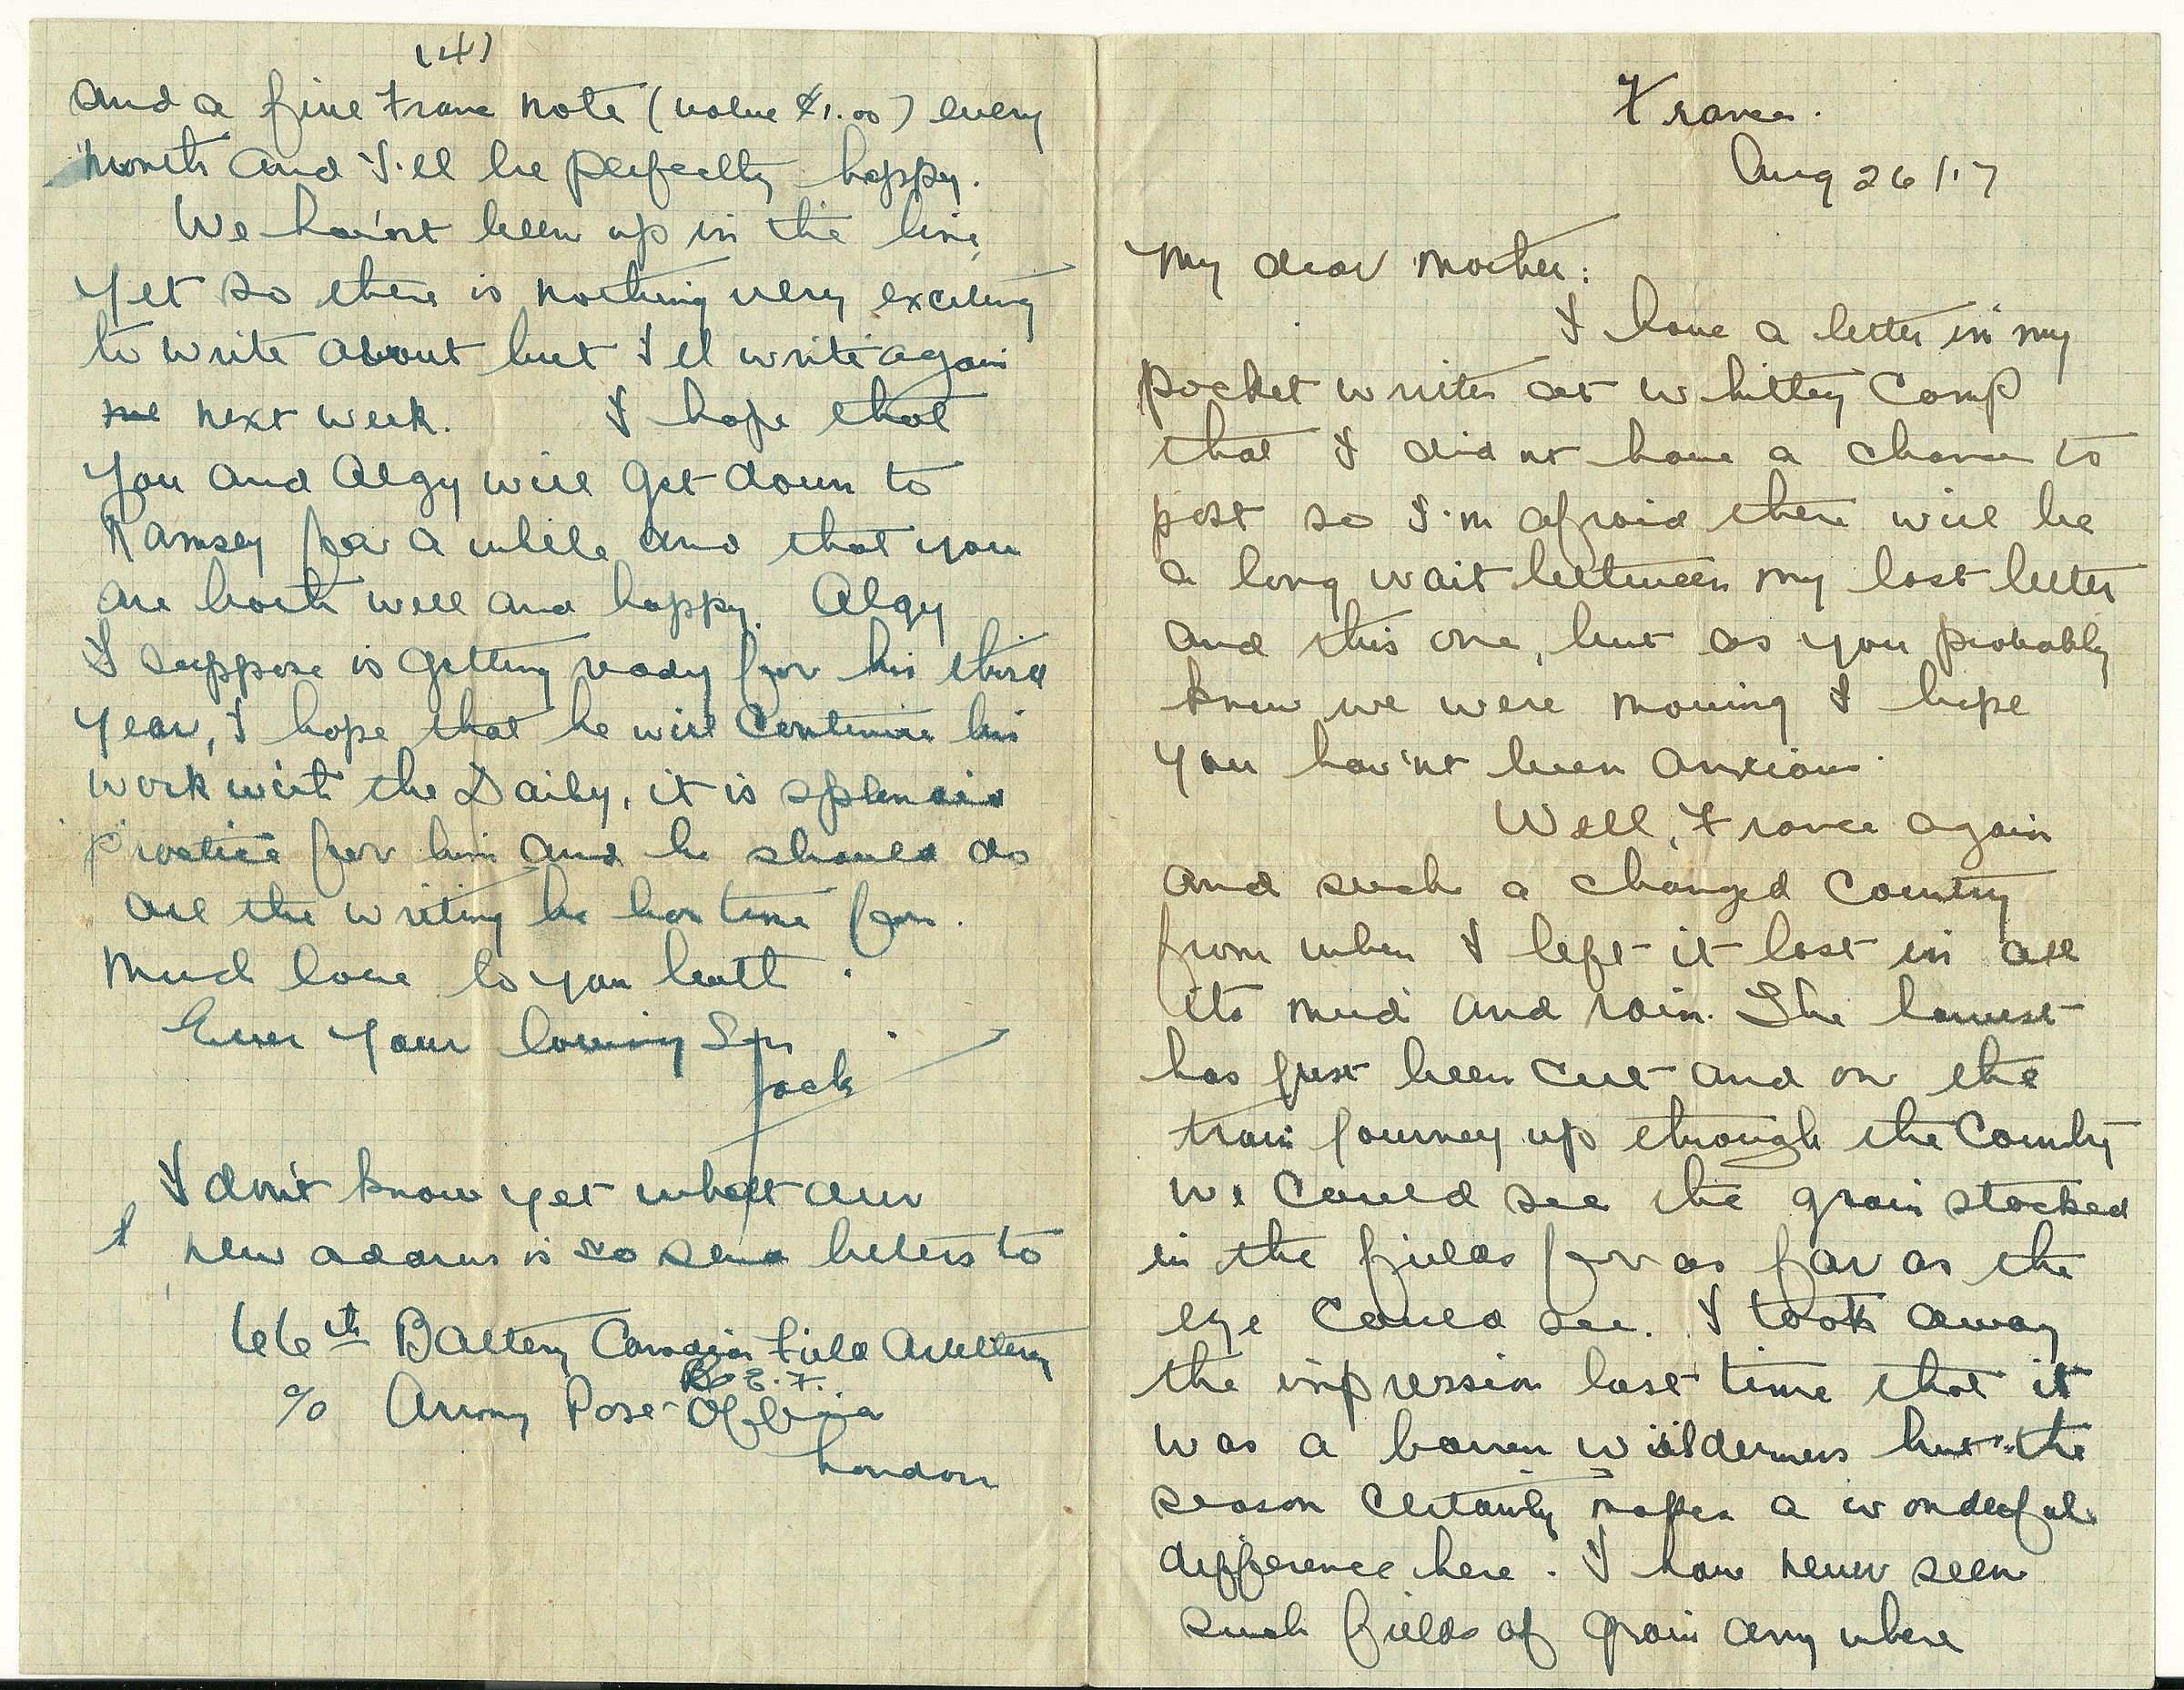 France.
Aug 26/17
My dear Mother:
I have a letter in my
pocket writen at Whitley Camp
that I did nt have a chance to
post so I'm afraid there will be
a long wait between my last letter
and this one, but as you probably
knew we were moving I hope
you hav'nt been anxious.
Well, France again
and such a changed country
from when I left it last in all
its mud and rain. The harvest
has just been cut and on the
train journey up through the country
we could see the grain stocked
in the fields for as far as the
eye could see. I took away
the impression last time that it
was a barren wilderness but the
season certainly makes a wonderful
difference here. I have never seen
such fields of grain any where
(4)
and a five Franc note (value $1.00) every
month and I'll be perfectly happy.
We hav'nt been up in the line
yet so there is nothing very exciting
to write about but I'll write again
next week. I hope that
you and Algy will get down to
Ramsey for a while and that you
are both well and happy. Algy
I suppose is getting ready for his third
year, I hope that he will continue his
work with the Daily, it is splendid
practice for him and he should do
all the writing he has time for.
Much love to you both.
Ever your loving Son
Jack
I don't know yet what our
new address is so send letters to
66th Battery Canadian Field Artillery
B.E.F.
c/o Army Post Office
London